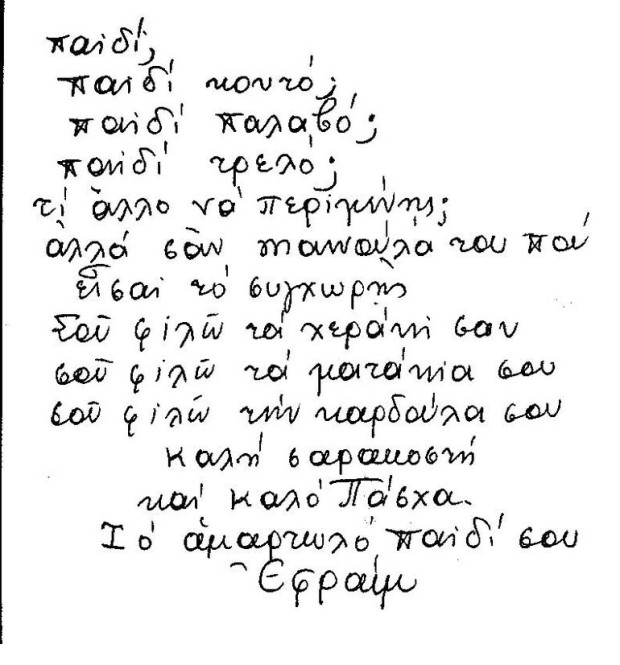 παιδί,
παιδί κουτό;
παιδί παλαβό;
παιδί τρελό;
τί ἄλλο νά περιμένης;
ἀλλά σάν μανούλα του πού
εἶσαι τό συγχωρῆς
Σοῦ φιλῶ τά χεράκι σου
σοῦ φιλῶ τά ματάκια σου
σοῦ φιλῶ τήν καρδούλα σου
καλή σαρακοστή
καί καλό Πάσχα.
Τό ἁμαρτωλό παιδί σου
Ἐφραίμ